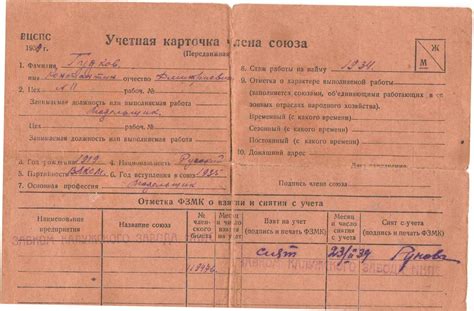 ВЦСПС
Учетная карточка члена союза
193 г.
(Передвижная)
Ж
М
1. Фамилия Гунков
имя Константин отчество Дмитриевич
2. Цех рабоч. №
Занимаемая должность или выполняемая работа
Модельщик
Цех рабоч. №
Занимаемая должность или выполняемая работа
3. Год рождения 1919 4. Национальность Русский
5. Партийность ВЛКСМ 6. Год вступления в союз 1935
7. Основная профессия Модельщик
8. Стаж работы по найму 1934
9. Отметка о характере выполняемой работы
(выполняется союзами, объединяющими работающих в
зонных отраслях народного хозяйства).
Временный (с какого времени)
Сезонный (с какого времени)
Постоянный (с какого времени)
10. Домашний адрес
Дата заполнения
Подпись члена союза
Отметка ФЗМК о взятии и снятии с учета
Наименование предприятия
Название союза
№ членского билета
Месяц и число взятия
Взят на учет (подпись и печать ФЗМК)
Месяц и число снятия с учета
Снят с учета (подпись и печать ФЗМК)
ЗАВКОМ КАЛУЖСКОГО ЗАВОДА
снят
23/II 39
ЗАВКОМ КАЛУЖСКОГО ЗАВОДА НКПС